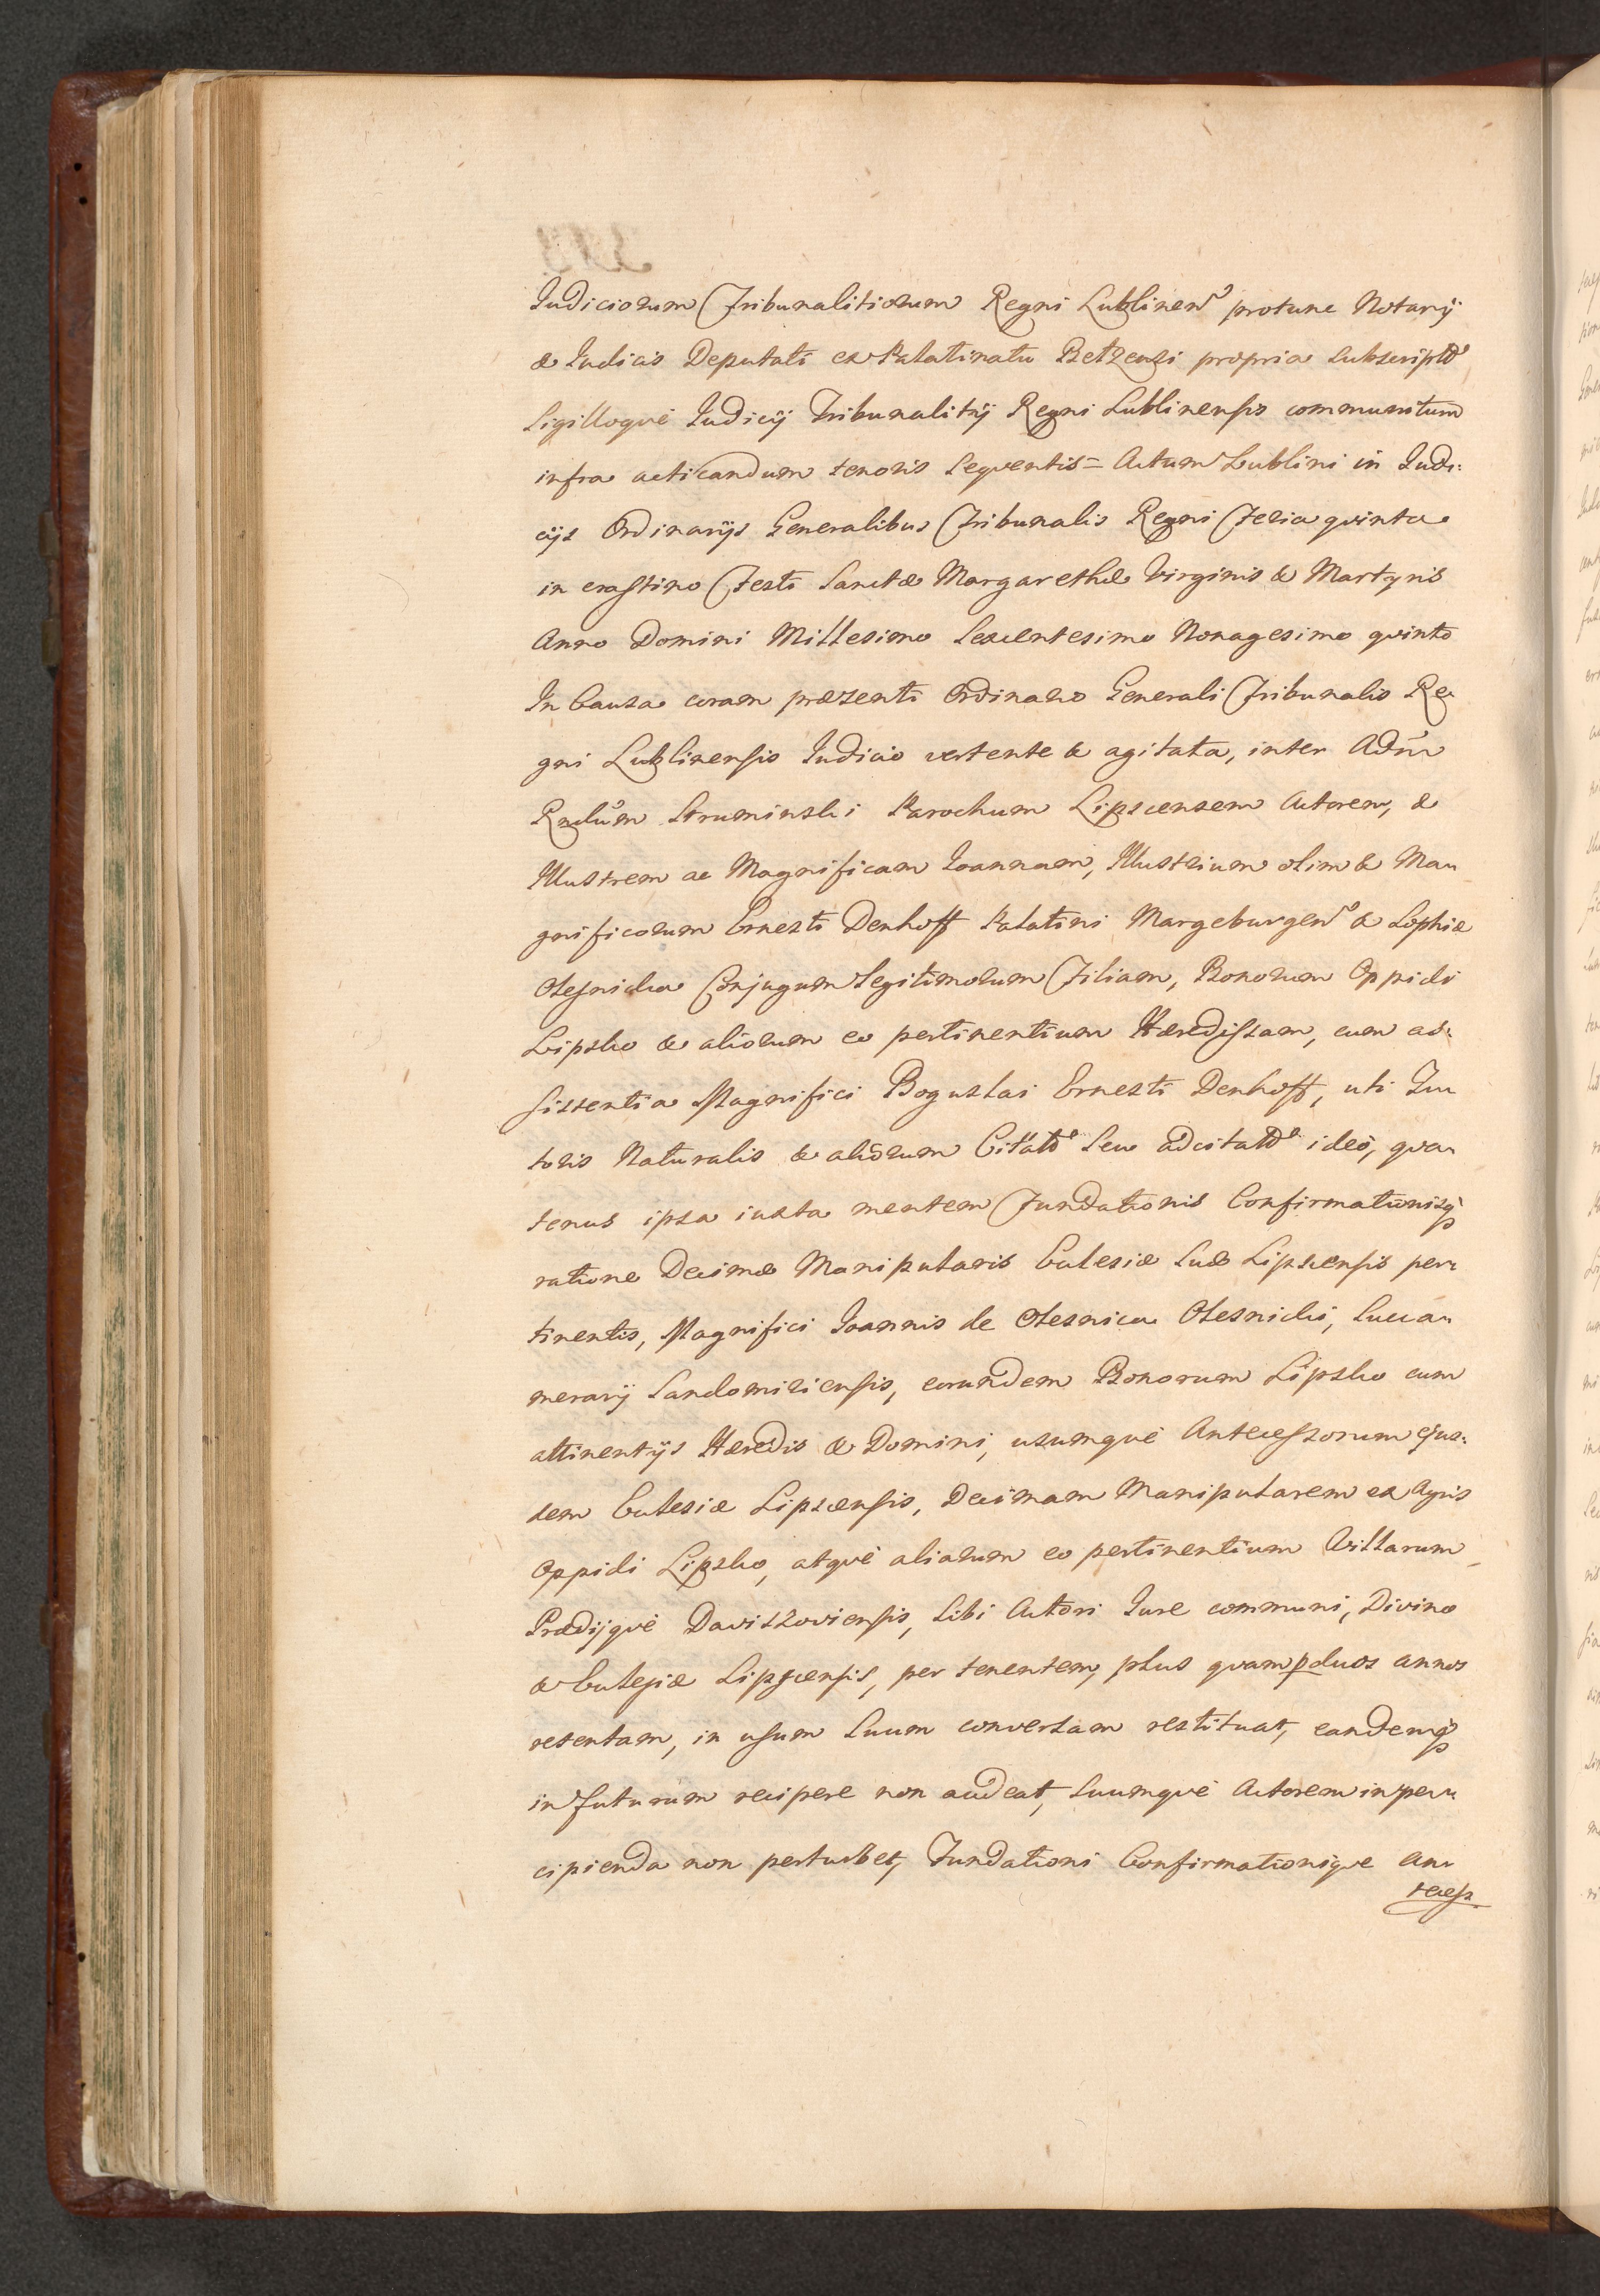 Judiciorum Tribunalitiorum Regni Lublinen protunc Notarij
& Judicis Deputati ex Palatinatu Betzensi propria subscript
Sigilloquè Judicij Tribunalitij Regni Lublinensis communitum
infra acticandum tenoris sequentis = Actum Lublini in Judi:
cijs Ordinarijs Generalibus Tribunalis Regni Feria quinta
in crastino Festi Sanctæ Margarethæ Virginis & Martyris
Anno Domini Millesimo Sexcentesimo Nonagesimo quinto
In Causa coram præsenti Ordinario Generali Tribunalis Re-
gni Lublinensis Judicio vertente & agitata, inter Adm
Rndum Struminski Parochum Lipscensem Actorem, &
Illustrem ac Magnificam Joannam, Illustrium olim & Ma-
gnificorum Ernesti Denhoff Palatini Margeburgen & Sophiæ
Olesnicka Conjugum Legitimorum Filiam, Bonorum Oppidi
Lipsko & aliorum eo pertinentium Hæredissam, cum as-
sistentia Magnifici Boguslai Ernesti Denhoff, uti Tu-
toris Naturalis & aliorum Citat seu adcitat ideò, qua-
tenus ipsa iuxta mentem Fundationis Confirmationisq
ratione Decimæ Manipularis Eclesiæ suæ Lipscensis per-
tinentis, Magnifici Joannis de Olesnica Olesnicki, Succa-
merarij Sandomiriensis, eorundem Bonorum Lipsko cum
attinentijs Hæredis & Domini, usumquè Antecessorum ejus-
dem Eclesiæ Lipscensis, Decimam Manipularem ex Agris
Oppidi Lipsko, atquè aliarum eo pertinentium Villarum
Prædijquè Daviszoviensis, sibi Actori Jure communi, Divino
& Eclesiæ Lipscensis, per tenentem, plus quam p duos annos
retentam, in usum suum conversam restituat, eandemq
in futurum recipere non audeat, suumquè Actorem in per-
cipienda non perturbet, Fundationi Confirmationique An-
tecess